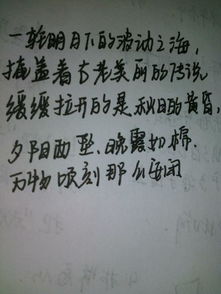 一轮明月下的波动之海,
掩盖着古老美丽的传说
缓缓拉开的是秋日的黄昏,
夕阳西坠、晚霞如棉.
万物顷刻那么安闲